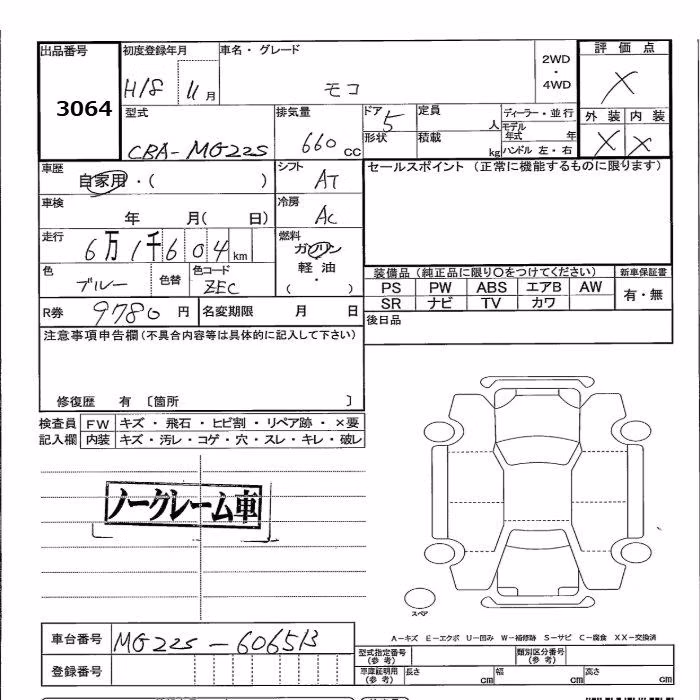 出品番号 3064
初度登録年月 H18 11月
車名・グレード モコ
2WD・4WD
評価点 X
型式 CBA-MG22S
排気量 660 cc
ドア 5
形状
定員 人
積載 kg
ディーラー・並行
モデル年式 年
ハンドル 左・右
外装 X 内装 X
車歴 自家用・( )
シフト AT
セールスポイント (正常に機能するものに限ります)
車検 年 月( 日)
冷房 AC
走行 6万1千604 km
燃料 ガソリン 軽油・( )
色 ブルー 色替 色コード ZEC
装備品 (純正品に限り〇をつけてください) 新車保証書
PS PW ABS エアB AW 有・無
SR ナビ TV カワ
R券 9780 円 名変期限 月 日
後日品
注意事項申告欄(不具合内容等は具体的に記入して下さい)
修復歴 有 〔箇所 〕
検査員記入欄 FW キズ・飛石・ヒビ割・リペア跡・×要
内装 キズ・汚レ・コゲ・穴・スレ・キレ・破レ
ノークレーム車
スペア
A-キズ E-エクボ U-凹み W-補修跡 S-サビ C-腐食 XX-交換済
車台番号 MG22S-606513
登録番号
型式指定番号(参考) 類別区分番号(参考)
車庫証明用(参考) 長さ cm 幅 cm 高さ cm